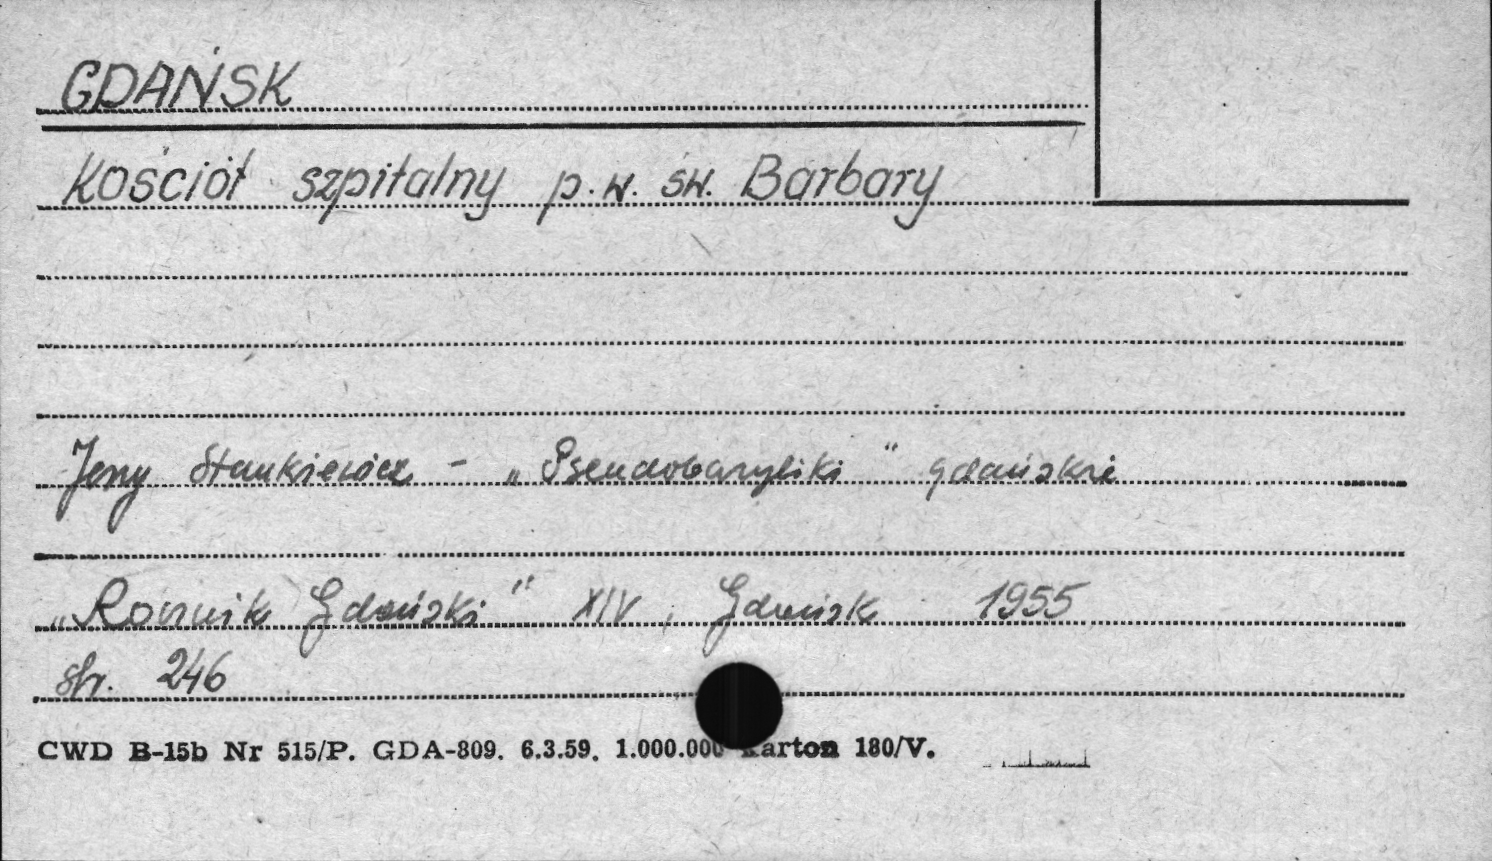 GDAŃSK
Kościół szpitalny p.w. św. Barbary
Jerzy Stankiewicz - „Pseudobazyliki" gdańskie
„Rocznik Gdański" XIV, Gdańsk 1955
str. 246
CWD B-15b Nr 515/P. GDA-809. 6.3.59. 1.000.000 Karton 180/V.